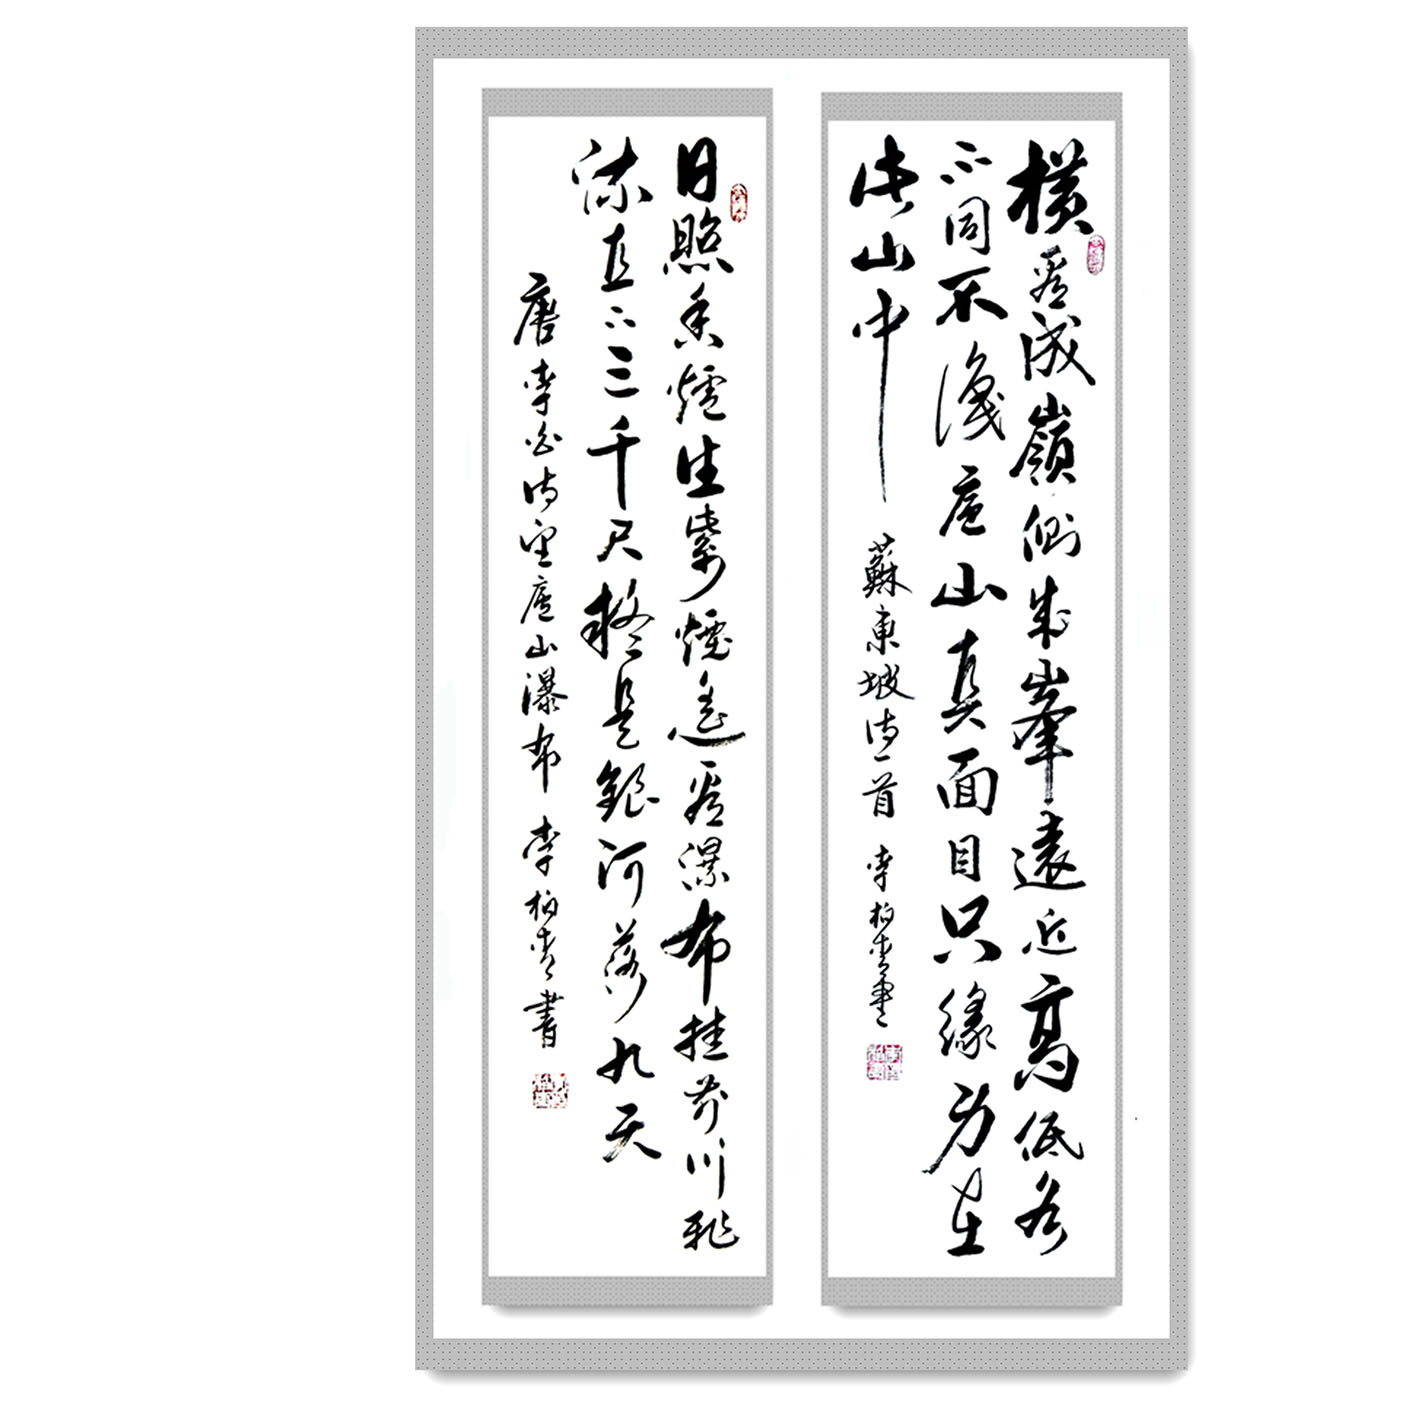 橫看成嶺側成峯遠近高低各
不同不識廬山真面目只緣身在
此山中 蘇東坡詩一首 李柏青書
日照香爐生紫煙遙看瀑布挂前川飛
流直下三千尺疑是銀河落九天
唐李白詩望廬山瀑布 李柏青書